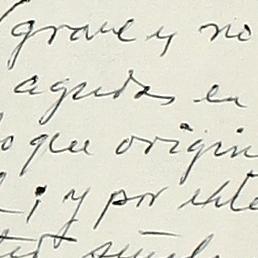 grave y no
agudos en
lo que origin
; y por este